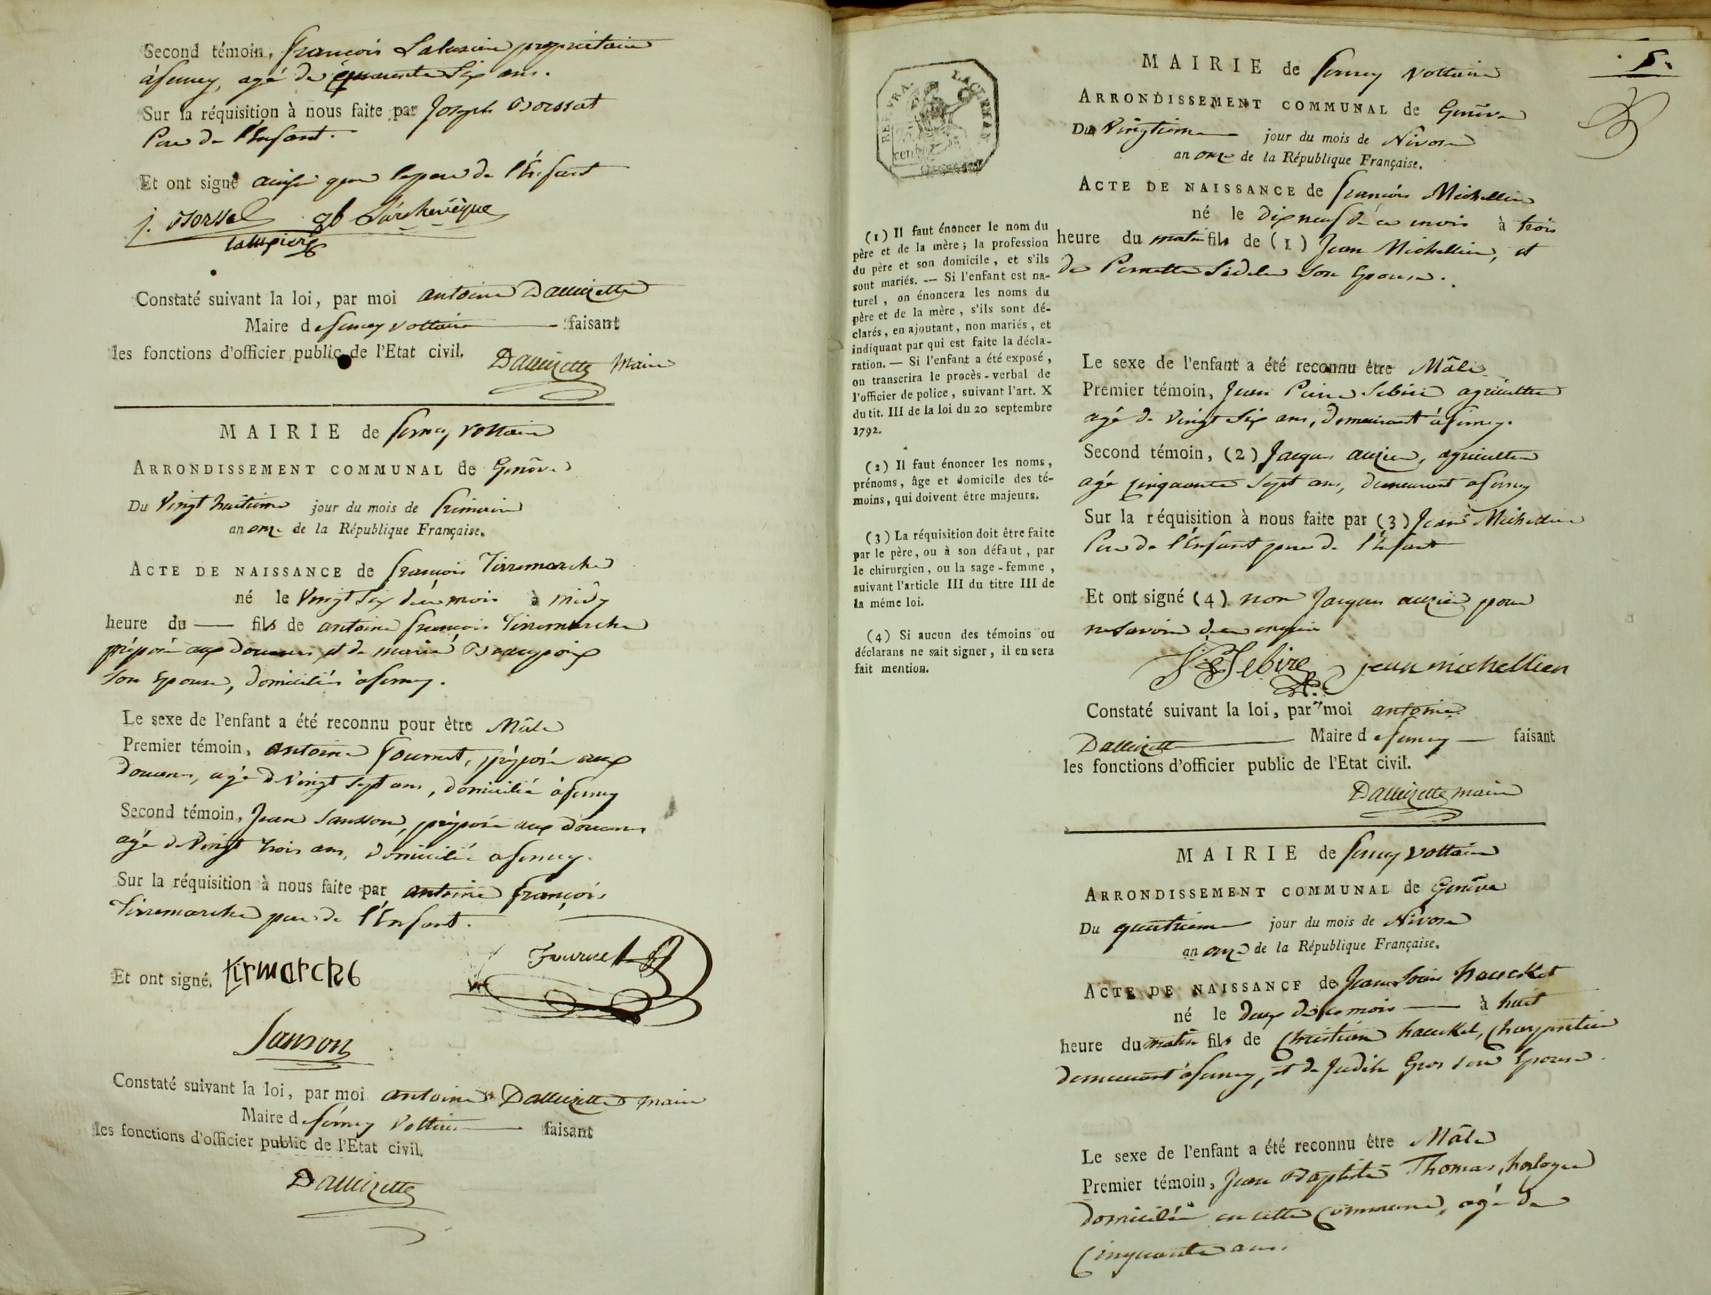 Second témoin, françois Lalusien propriétaire
à ferney, agé de quarante Six ans.
Sur la réquisition à nous faite par Joseph Borssat
Pere de l'Enfant.
Et ont signé ainsi que le pere de l'Enfant
J. Borssat gb Larchevêque
Constaté suivant la loi, par moi antoine Dallizette
Maire de ferney voltaire faisant
les fonctions d'officier public de l'Etat civil.
Dallizette Maire
MAIRIE de ferney voltaire
ARRONDISSEMENT COMMUNAL de Genêve
Du vingt huitieme jour du mois de frimaire
an onze de la République Française.
ACTE DE NAISSANCE de françois Tirremarche
né le vingt Six du mois à midy
heure du — fils de antoine françois Tirremarche
préposé aux douanes et de marie Beaupoix
Son Epouse, domiciliés à ferney.
Le sexe de l'enfant a été reconnu pour être Mâle
Premier témoin, antoine fournet, préposé aux
douanes, agé de vingt sept ans, domicilié à ferney
Second témoin, Jean Sansson, préposé aux douanes
agé de vingt trois ans, domicilié a ferney.
Sur la réquisition à nous faite par antoine françois
Tirremarche pere de l'Enfant.
Et ont signé, tirmarche
Sanson
Constaté suivant la loi, par moi antoine Dallizette maire
Maire de ferney Voltaire faisant
les fonctions d'officier public de l'Etat civil.
Dallizette
5.
MAIRIE de ferney voltaire
ARRONDISSEMENT COMMUNAL de Genêve
Du vingtieme jour du mois de Nivose
an onze de la République Française.
ACTE DE NAISSANCE de françois Michellien
né le dix neuf de ce mois à trois
heure du matin fils de (1) Jean Michellien, et
de Pernette Sedile son Epouse.
Le sexe de l'enfant a été reconnu être Mâle
Premier témoin, Jean Pierre Sebire agriculteur
agé de vingt Six ans, demeurant à ferney.
Second témoin, (2) Jacques auzier, agriculteur
agé cinquante Sept ans, demeurant a ferney
Sur la réquisition à nous faite par (3) Jean Michellien
Pere de l'Enfant pere de l'enfant
Et ont signé (4) non Jacques auzier pour
ne savoir de ce enquis
Sebire jean michellien
Constaté suivant la loi, par moi antoine
Dallizette Maire de ferney faisant
les fonctions d'officier public de l'Etat civil.
Dallizette maire
(1) Il faut énoncer le nom du
père et de la mère; la profession
du père et son domicile, et s'ils
sont mariés. — Si l'enfant est na-
turel, on énoncera les noms du
père et de la mère, s'ils sont dé-
clarés, en ajoutant, non mariés, et
indiquant par qui est faite la décla-
ration. — Si l'enfant a été exposé,
on transcrira le procès-verbal de
l'officier de police, suivant l'art. X
du tit. III de la loi du 20 septembre
1792.
(2) Il faut énoncer les noms,
prénoms, âge et domicile des té-
moins, qui doivent être majeurs.
(3) La réquisition doit être faite
par le père, ou à son défaut, par
le chirurgien, ou la sage-femme,
suivant l'article III du titre III de
la même loi.
(4) Si aucun des témoins ou
déclarans ne sait signer, il en sera
fait mention.
MAIRIE de ferney voltaire
ARRONDISSEMENT COMMUNAL de Genêve
Du quatrieme jour du mois de Nivose
an onze de la République Française.
ACTE DE NAISSANCE de Jean Louis haueckel
né le deux de ce mois — à huit
heure du matin fils de Chrittien haueckel, Charpentier
demeurant à ferney, et de Judith Gros son Epouse.
Le sexe de l'enfant a été reconnu être Mâle
Premier témoin, Jean Baptiste Thomas, horloger
domicilié en cette Commune, agé de
Cinquante ans.